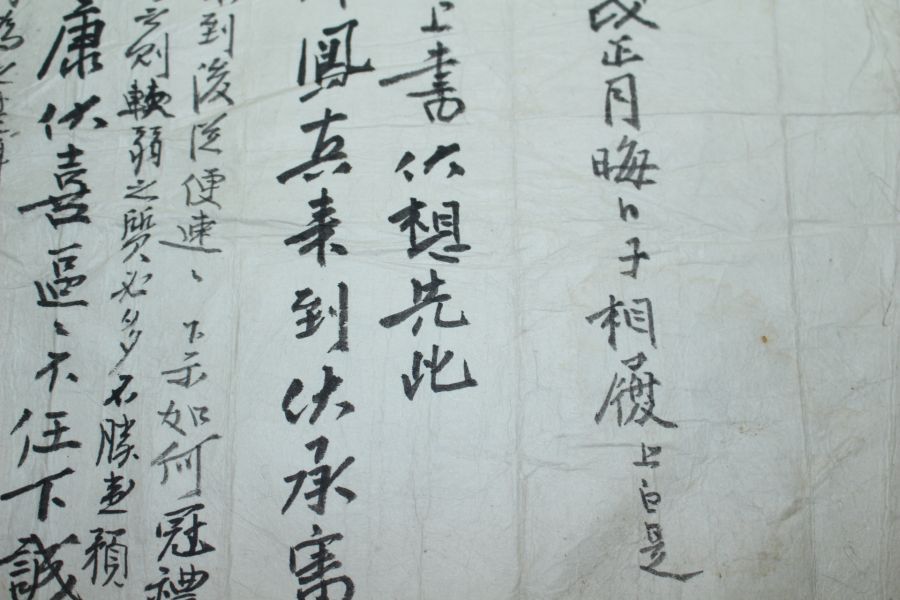 正月晦日子相履上白是
上書伏想先此
鳳真来到伏承審
到後從便速〻下示如何冠禮
則軟弱之質必多不勝
康伏喜區〻不任下誠